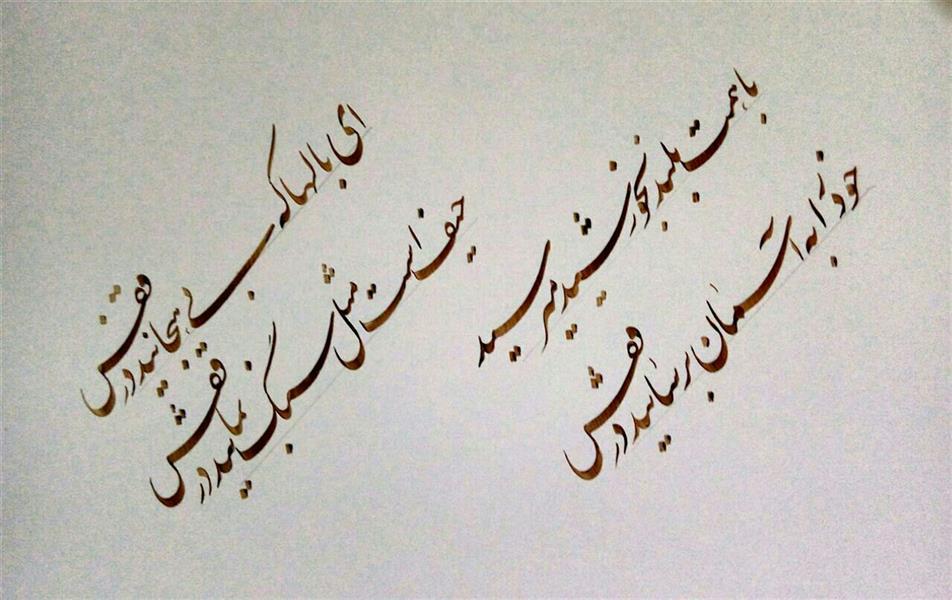 با همت بلند به خورشید می‌رسید
خود را به آسمان برسانید و رقفش
ای بالها که بی هیجانید در قفس
حیف است مثل سنگ بمانید در قفس